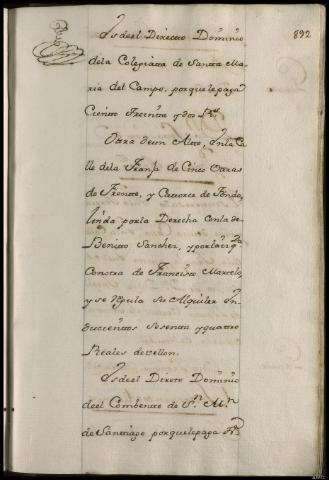 892
Es deel Directo Dominio
dela Colegiata de Santta Ma
ria del Campo, porque le paga
Ciento Treintta y dos Rs.
Ottra de un Altto, en la Ca
lle dela Franja de Cinco Varas
de Frentte, y Cattorce de Fondo,
linda por la Derecha con la de
Benitto Sanchez, y por la izqda.
Con otra de Francisco Marcelo,
y se regula su Alquiler en
Duccienttos Sesentta y quattro
Reales de vellon.
Es deel Diretto Dominio
deel Combentto de Sn. Mn.
de Santtiago por que le paga